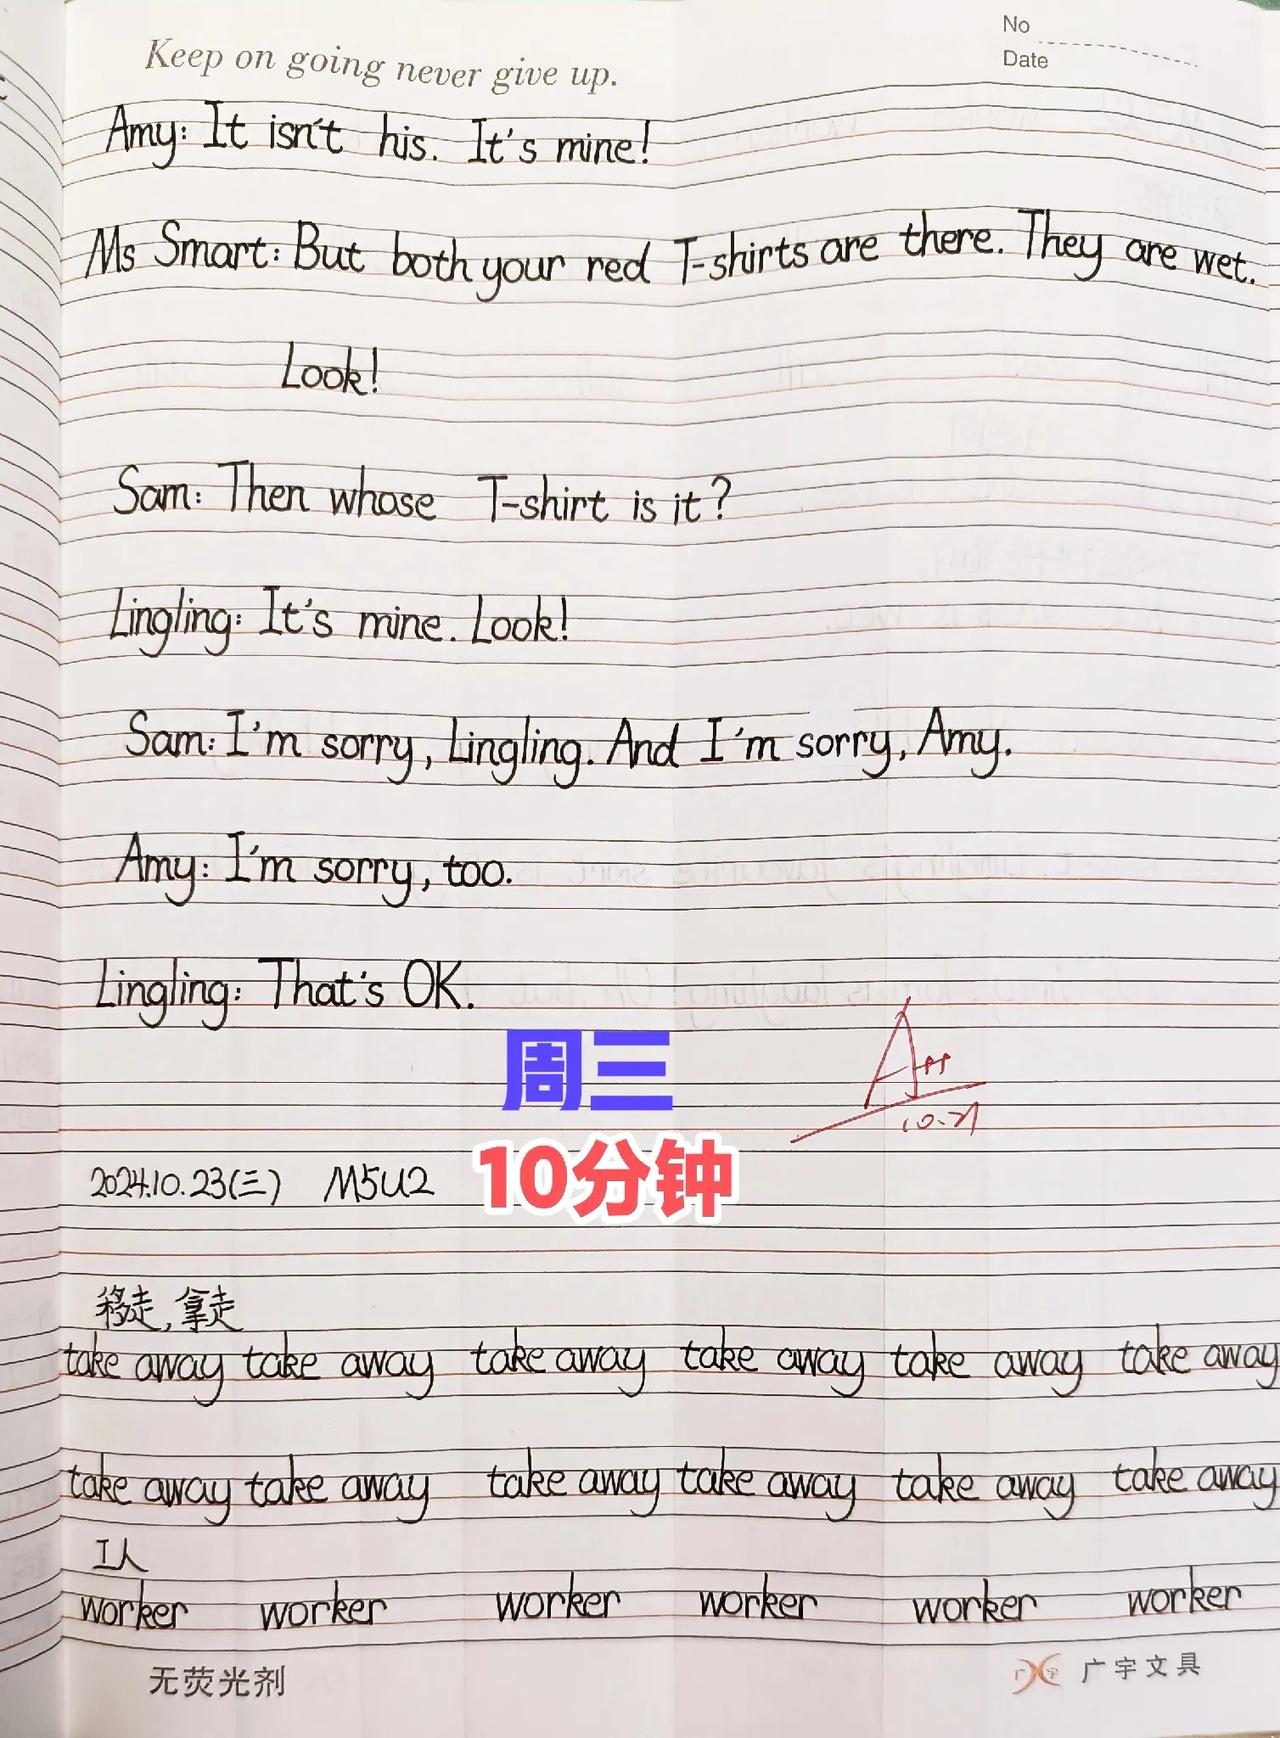 No
Date
Keep on going never give up.
Amy: It isn't his. It's mine!
Ms Smart: But both your red T-shirts are there. They are wet.
Look!
Sam: Then whose T-shirt is it?
Lingling: It's mine. Look!
Sam: I'm sorry, Lingling. And I'm sorry, Amy.
Amy: I'm sorry, too.
Lingling: That's OK.
周三
A++
10分钟
2024.10.23(三) M5U2
移走,拿走
take away take away take away take away take away take away
take away take away take away take away take away take away
工人
worker worker worker worker worker worker
无荧光剂
广宇文具